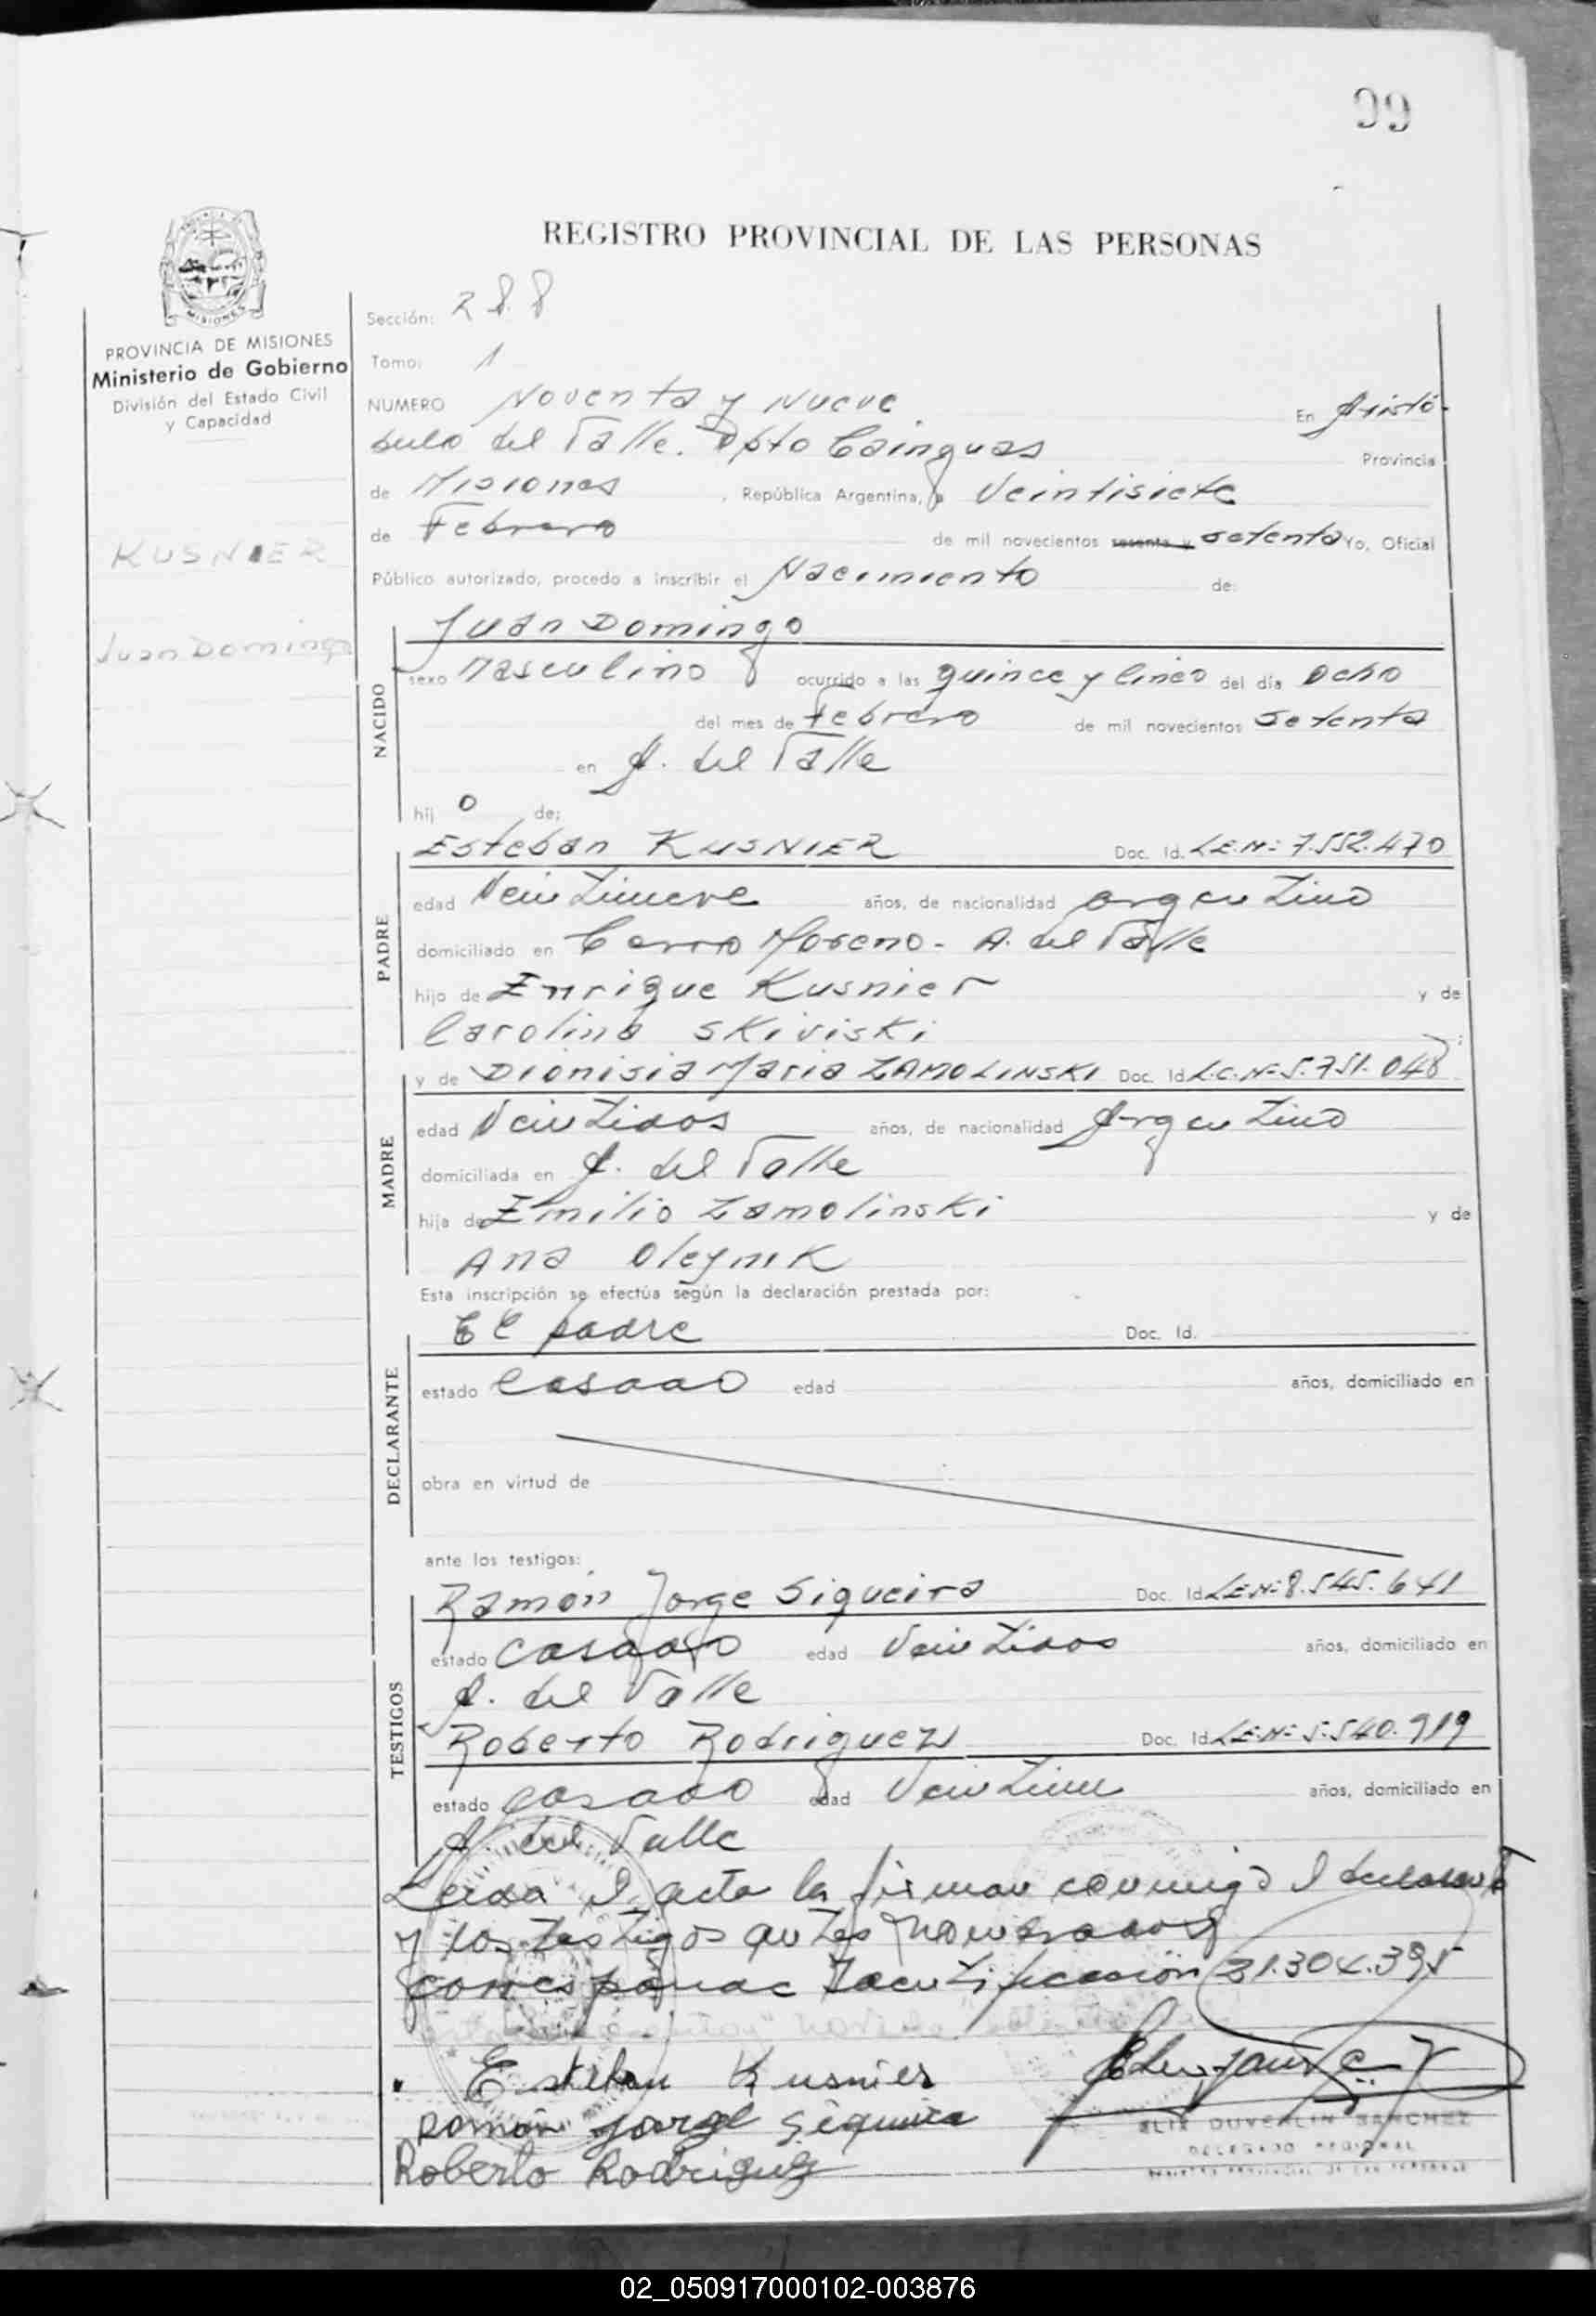 99
REGISTRO PROVINCIAL DE LAS PERSONAS
MISIONES
PROVINCIA DE MISIONES
Ministerio de Gobierno
División del Estado Civil
y Capacidad
KUSNIER
Juan Domingo
Sección: 288
Tomo: 1
NUMERO Noventa y Nueve En Aristó-
bulo del Valle. Dpto Cainguas Provincia
de Misiones, República Argentina, a Veintisiete
de Febrero de mil novecientos sesenta y setenta Yo, Oficial
Público autorizado, procedo a inscribir el Nacimiento de:
NACIDO
Juan Domingo
sexo Masculino ocurrido a las quince y cinco del día Ocho
del mes de Febrero de mil novecientos Setenta
en A. del Valle
hij o de:
PADRE
Esteban KUSNIER Doc. Id. L.E.Nº 7.552.470
edad Veintinueve años, de nacionalidad argentino
domiciliado en Cerro Moreno - A. del Valle
hijo de Enrique Kusnier y de
Carolina Skiviski
MADRE
y de Dionisia Maria ZAMOLINSKI Doc. Id L.C.Nº 5.751.048
edad Veintidos años, de nacionalidad Argentino
domiciliada en A. del Valle
hija de Emilio Zamolinski y de
Ana Oleynik
Esta inscripción se efectúa según la declaración prestada por:
DECLARANTE
El padre Doc. Id.
estado Casado edad años, domiciliado en
obra en virtud de
ante los testigos:
TESTIGOS
Ramón Jorge Siqueira Doc. Id L.E.Nº 8.545.641
estado Casado edad Veintidos años, domiciliado en
A. del Valle
Roberto Rodriguez Doc. Id L.E.Nº 5.540.919
estado casado edad años, domiciliado en
A. del Valle
Leida el acta la firman conmigo el declarante
y los testigos antes nombrados
corresponde Identificacion 21.304.395
Esteban Kusnier
Ramón Jorge Siqueira
Roberto Rodriguez
DUVERLIN SANCHEZ
DELEGADO REGIONAL
REGISTRO PROVINCIAL DE LAS PERSONAS
02_050917000102-003876